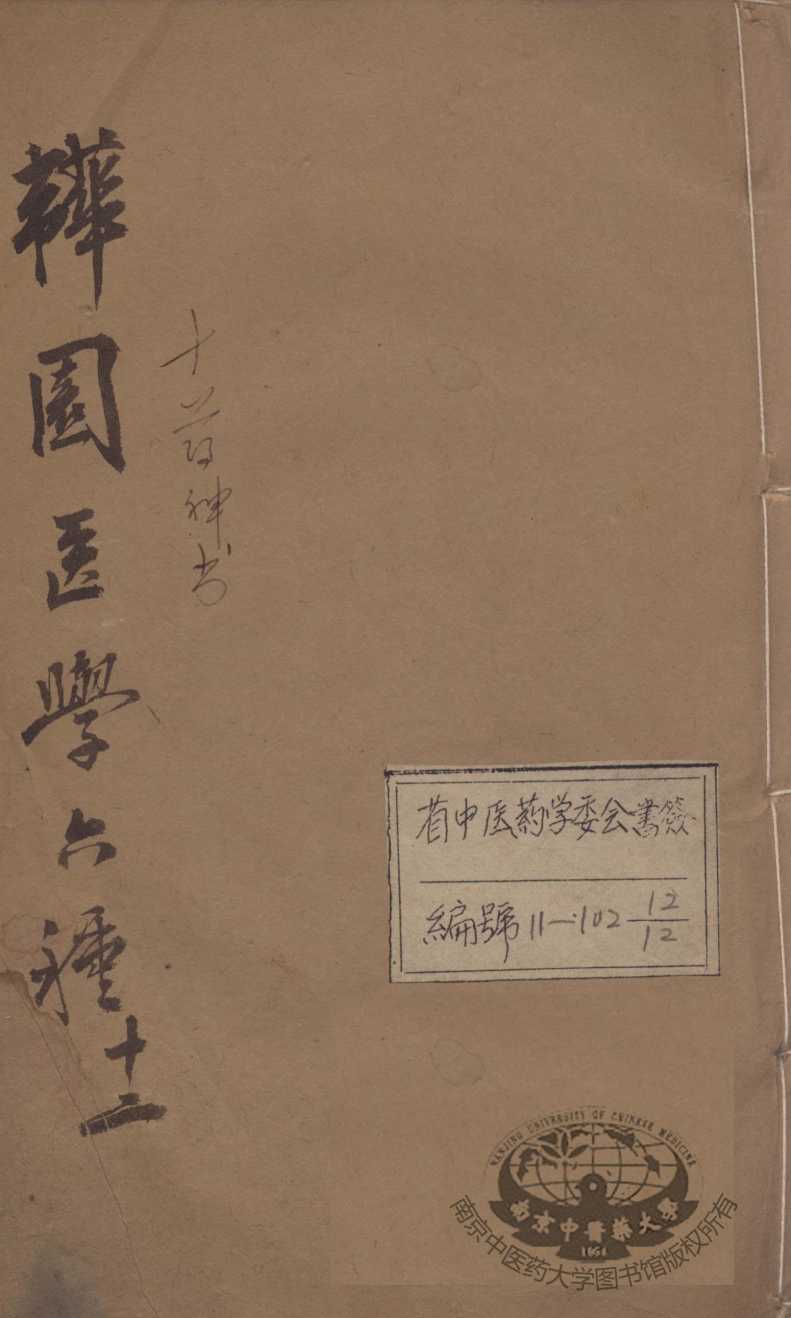 韡園医學六種
十二
十药神书
省中医药学委会書簽
編號11—102 12/12
NANJING UNIVERSITY OF CHINESE MEDICINE
南京中醫藥大學
1954
南京中医药大学图书馆版权所有